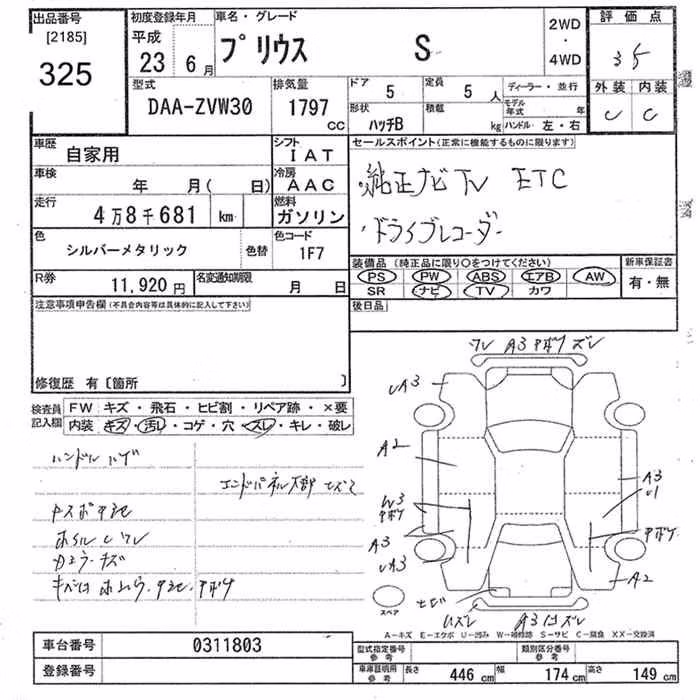 出品番号
[2185]
325
初度登録年月
平成
23 6月
車名・グレード
プリウス S
2WD
・
4WD
評価点
35
外装 内装
C C
型式
DAA-ZVW30
排気量
1797
CC
ドア 5
定員 5 人
ディーラー・並行
形状
ハッチB
積載 kg
モデル年式 年
ハンドル 左・右
車歴
自家用
シフト
IAT
車検 年 月( 日)
冷房
AAC
走行
4万8千681 km
燃料
ガソリン
色
シルバーメタリック
色替
色コード
1F7
R券
11,920円
名変通知期限
月 日
セールスポイント(正常に機能するものに限ります)
・純正ナビ TV ETC
・ドライブレコーダー
装備品(純正品に限り○をつけてください)
PS PW ABS エアB AW
SR ナビ TV カワ
新車保証書
有・無
後日品
注意事項申告欄(不具合内容等は具体的に記入して下さい)
修復歴 有〔箇所 〕
検査員記入欄
FW キズ・飛石・ヒビ割・リペア跡・×要
内装 キズ・汚れ・コゲ・穴・スレ・キレ・破レ
ハンドル ハゲ
エンドパネル下部
A3
A2
W3
A3
A3
U1
A2
スペア
A-キズ E-エクボ U-凹み W-補修跡 S-サビ C-腐食 XX-交換済
車台番号 0311803
登録番号
型式指定番号 参考
類別区分番号 参考
車庫証明用 参考
長さ 446 cm 幅 174 cm 高さ 149 cm